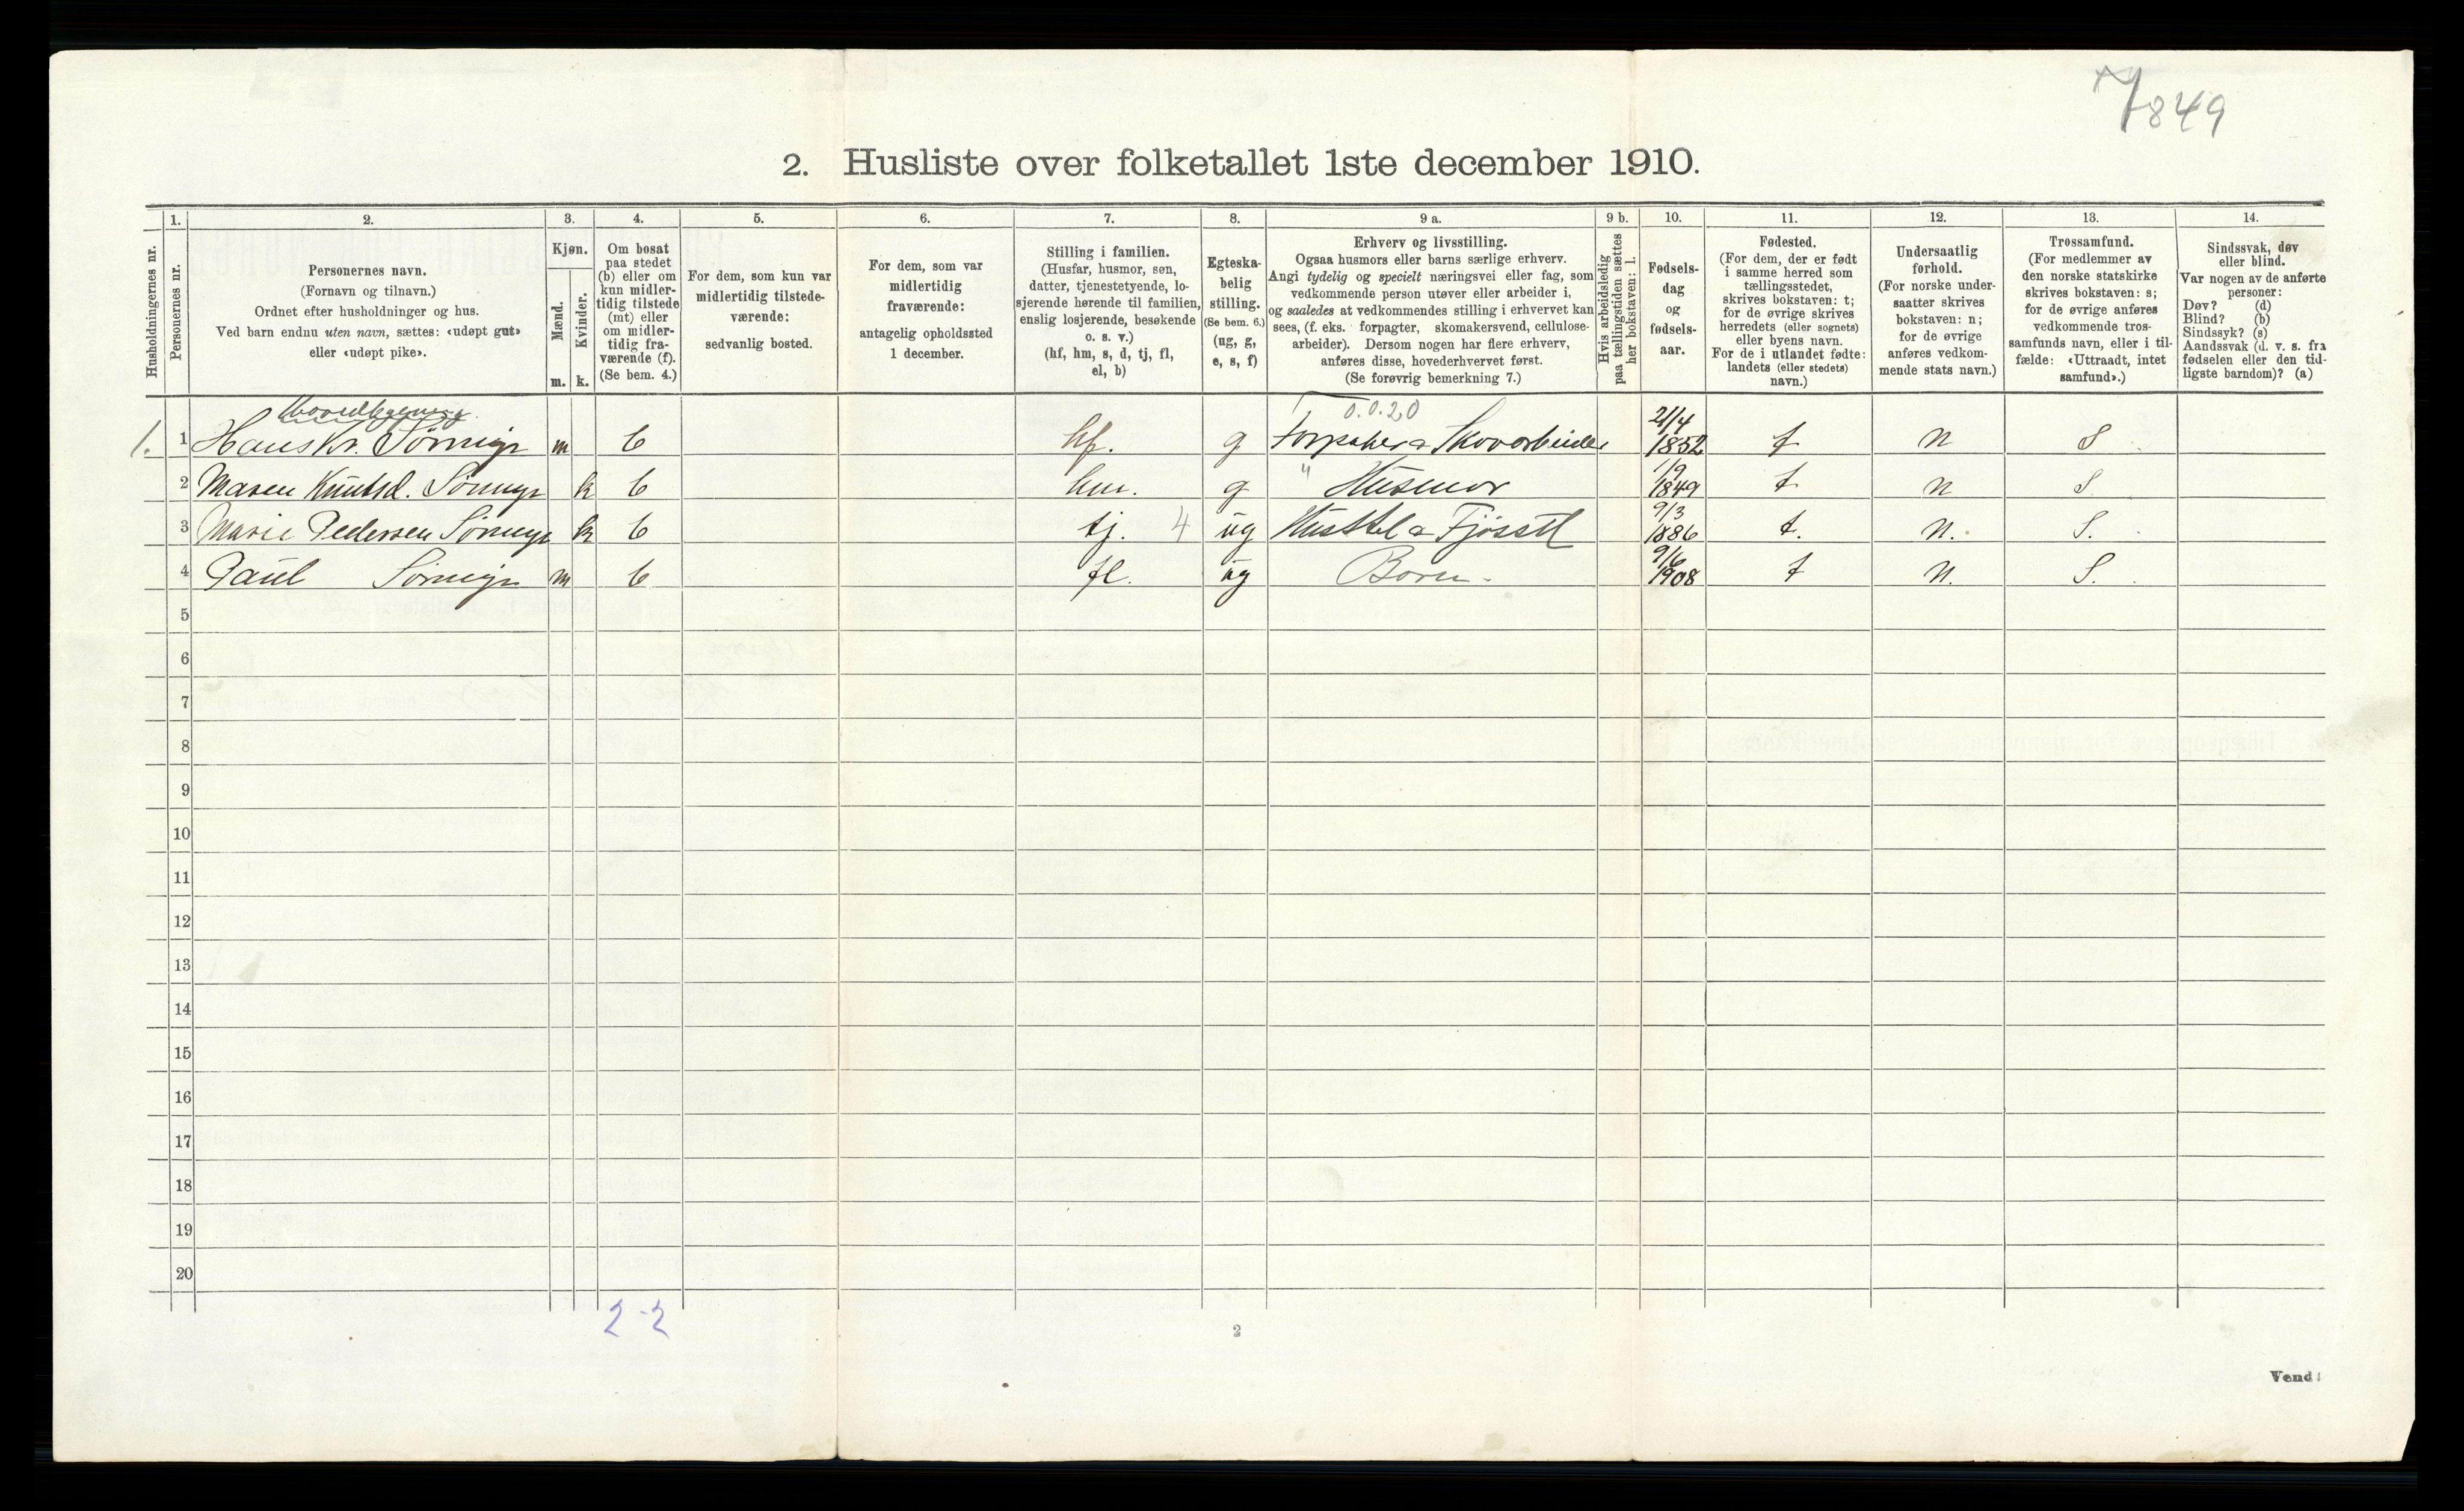 7849
2. Husliste over folketallet 1ste december 1910.
Husholdningernes nr.
1.
Personernes nr.
2.
Personernes navn.
(Fornavn og tilnavn.)
Ordnet efter husholdninger og hus.
Ved barn endnu uten navn, sættes: «udøpt gut»
eller «udøpt pike».
3.
Kjøn.
Mænd.
Kvinder.
m. k.
4.
Om bosat
paa stedet
(b) eller om
kun midler-
tidig tilstede
(mt) eller
om midler-
tidig fra-
værende (f).
(Se bem. 4.)
5.
For dem, som kun var
midlertidig tilstede-
værende:
sedvanlig bosted.
6.
For dem, som var
midlertidig
fraværende:
antagelig opholdssted
1 december.
7.
Stilling i familien.
(Husfar, husmor, søn,
datter, tjenestetyende, lo-
sjerende hørende til familien,
enslig losjerende, besøkende
o. s. v.)
(hf, hm, s, d, tj, fl,
el, b)
8.
Egteska-
belig
stilling.
(Se bem. 6.)
(ug, g,
e, s, f)
9 a.
Erhverv og livsstilling.
Ogsaa husmors eller barns særlige erhverv.
Angi tydelig og specielt næringsvei eller fag, som
vedkommende person utøver eller arbeider i,
og saaledes at vedkommendes stilling i erhvervet kan
sees, (f. eks. forpagter, skomakersvend, cellulose-
arbeider). Dersom nogen har flere erhverv,
anføres disse, hovederhvervet først.
(Se forøvrig bemerkning 7.)
9 b.
Hvis arbeidsledig
paa tællingstiden sættes
her bokstaven: l.
10.
Fødsels-
dag
og
fødsels-
aar.
11.
Fødested.
(For dem, der er født
i samme herred som
tællingsstedet,
skrives bokstaven: t;
for de øvrige skrives
herredets (eller sognets)
eller byens navn.
For de i utlandet fødte:
landets (eller stedets)
navn.)
12.
Undersaatlig
forhold.
(For norske under-
saatter skrives
bokstaven: n;
for de øvrige
anføres vedkom-
mende stats navn.)
13.
Trossamfund.
(For medlemmer av
den norske statskirke
skrives bokstaven: s;
for de øvrige anføres
vedkommende tros-
samfunds navn, eller i til-
fælde: «Uttraadt, intet
samfund».)
14.
Sindssvak, døv
eller blind.
Var nogen av de anførte
personer:
Døv? (d)
Blind? (b)
Sindssyk? (s)
Aandssvak (d. v. s. fra
fødselen eller den tid-
ligste barndom)? (a)
Hovedbygning
0.0.20
1. 1 Hans Kr. Sørmyr m b hf. g Skovarbeider 21/4 1852 t n S
2 Maren Knutsd. Sørmyr k b hm. g " Husmor 1/9 1849 t n S
3 Marie Pedersen Sørmyr k b tj. 4 ug Husstel a Fjøsstl 9/3 1886 t. n. S.
4 Paul Sørmyr m b fl. ug Barn. 9/6 1908 t n. S.
5
6
7
8
9
10
11
12
13
14
15
16
17
18
19
20
2-2
2
Vend!